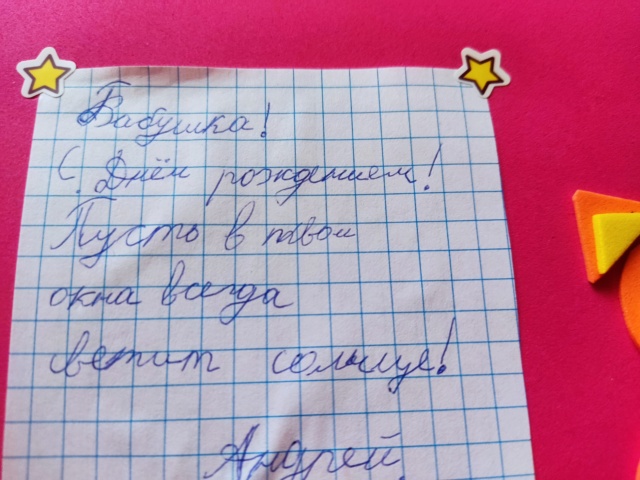 Бабушка!
С Днём рождением!
Пусть в твои
окна всегда
светит солнце!
Андрей.